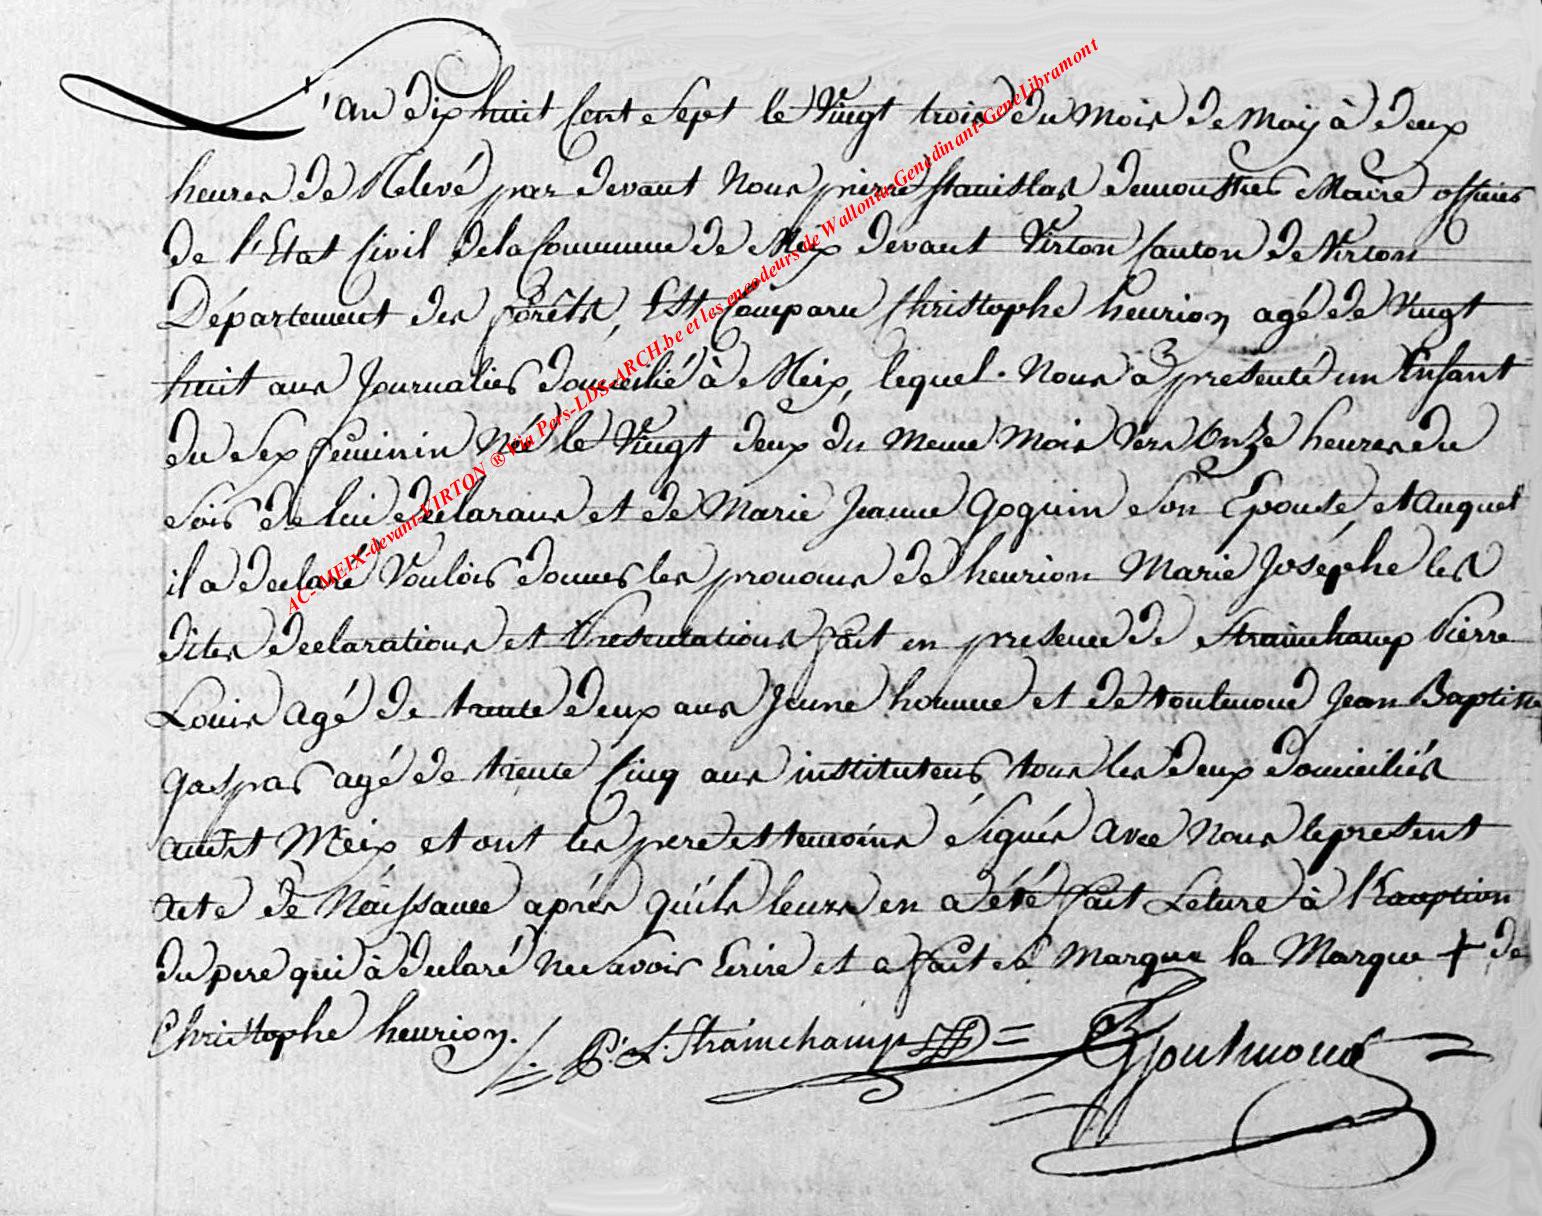 L'an dix huit Cent Sept le Vingt trois du Mois de Maÿ à deux
heures de Relevé par devant Nous pierre stanislas demousties Maire officier
de l'Etat Civil de la Commune de Meix devant Virton Canton de Virton
Département des forêts, Est Comparu Christophe henrion agé de Vingt
huit ans Journalier domicilié à Meix, lequel Nous à présenté un Enfant
du Sex féminin Né le Vingt deux du meme Mois Vers Onze heures du
Soir de lui declarans et de Marie Jeanne Goguin Son Epouse et auquel
il a declaré Vouloir donner les pronoms de henrion Marie Joséphe les
dites declarations et Presentations fait en presence de Strainchamp Pierre
Louis agé de trente deux ans Jeune homme et de toulmond Jean Baptiste
gaspar agé de trente Cinq ans instituteur tous les deux domiciliés
audit Meix et ont les pere et temoins Signés avec Nous le present
acte de Naissance aprés qu'ils leurs en a été fait Leture à l'Exeption
du pere qui à declaré Ne avoir Ecrire et a fait sa Marque la Marque + de
Christophe henrion.
P. L. Strainchamp = Gtoulmond =
AC-MEIX-devant-VIRTON ® Via Pers-LDS-ARCH.be et les encodeurs de Wallonia-Genedinant-GeneLibramont